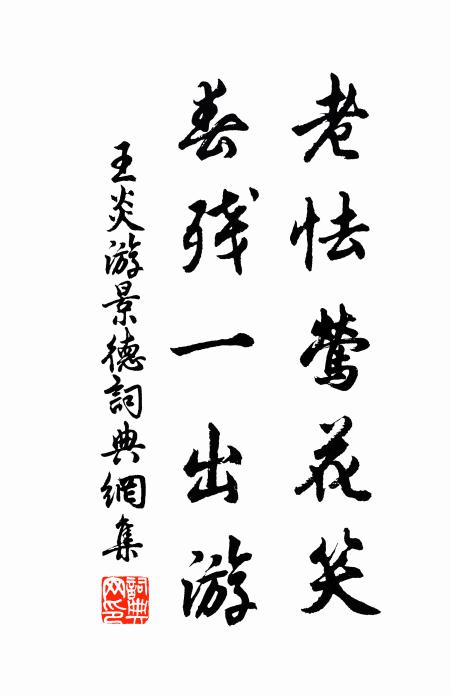 老怯鶯花笑
春残一出游
王炎游景德詞典網集
詞典网印